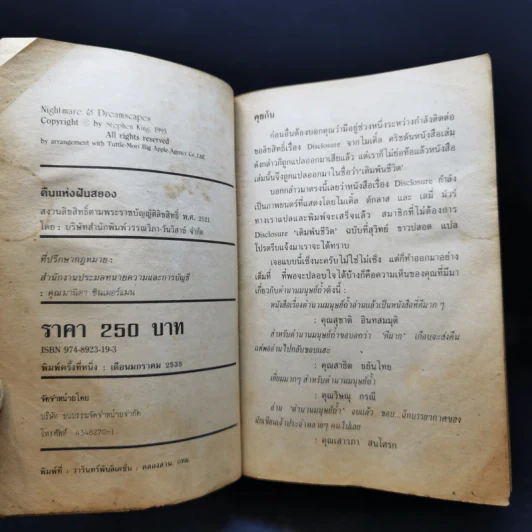 Nightmare & Dreamscapes
Copyright © by Stephen King, 1993
All rights reserved
by arrangement with Tuttle-Mori Big Apple Agency Co., Ltd.
คืนแห่งฝันสยอง
สงวนลิขสิทธิ์ตามพระราชบัญญัติลิขสิทธิ์ พ.ศ. 2521
โดย : บริษัทสำนักพิมพ์วรรณวิภา-วันวิสาข์ จำกัด
ที่ปรึกษากฎหมาย :
สำนักงานประมวลทนายความและการบัญชี
: คุณมานิดา ซินเมอร์แมน
ราคา 250 บาท
ISBN 974-8923-19-3
พิมพ์ครั้งที่หนึ่ง : เดือนมกราคม 2538
จัดจำหน่ายโดย
บริษัท ชมรมจัดจำหน่ายจำกัด
โทรศัพท์ :
พิมพ์ที่ : วารินทร์พับลิเคชั่น : คลองสาน กทม.
คุยกัน
ก่อนอื่นต้องบอกคุณว่ามีอยู่ช่วงหนึ่งระหว่างกำลังติดต่อ
ขอลิขสิทธิ์เรื่อง Disclosure จากไมเคิล ครัชตันหนังสือเล่ม
ดังกล่าวก็ถูกแปลออกมาเสียแล้ว แต่เราก็ไม่ย่อท้อแล้วหนังสือ
เล่มนั้นจึงถูกแปลออกมาในชื่อว่า'เดิมพันชีวิต'
บอกกล่าวมาตรงนี้เลยว่าหนังสือเรื่อง Disclosure กำลัง
เป็นภาพยนตร์ที่แสดงโดยไมเคิล ดักลาส และ เดมี่ มัวร์
ทางเราแปลและพิมพ์จะเสร็จแล้ว สมาชิกที่ไม่ต้องการ
Disclosure 'เดิมพันชีวิต' ฉบับที่สุวิทย์ ขาวปลอด แปล
โปรดรีบแจ้งมาเราจะได้ทราบ
เจอแบบนี้เซ็งนะครับไม่ใช่ไม่เซ็ง แต่ก็ทำออกมาอย่าง
เต็มที่ ที่พอจะปลอบใจได้บ้างก็คือความเห็นของคุณที่มีมา
เกี่ยวกับตำนานมนุษย์ถ้ำดังนี้ :
หนังสือเรื่องตำนานมนุษย์ถ้ำอ่านแล้วเป็นหนังสือที่ดีมาก ๆ
: คุณสุชาติ อินทสมมุติ
สำหรับตำนานมนุษย์ถ้ำขอบอกว่า "ดีมาก" เกือบจะส่งคืน
แต่พออ่านไปกลับชอบแฮะ
: คุณสาธิต ขยันไทย
เยี่ยมมากๆ สำหรับตำนานมนุษย์ถ้ำ
: คุณวิษณุ กรณี
อ่าน "ตำนานมนุษย์ถ้ำ" จบแล้ว ชอบ บรรยากาศของ
: คุณเสาวภา สนโศรก